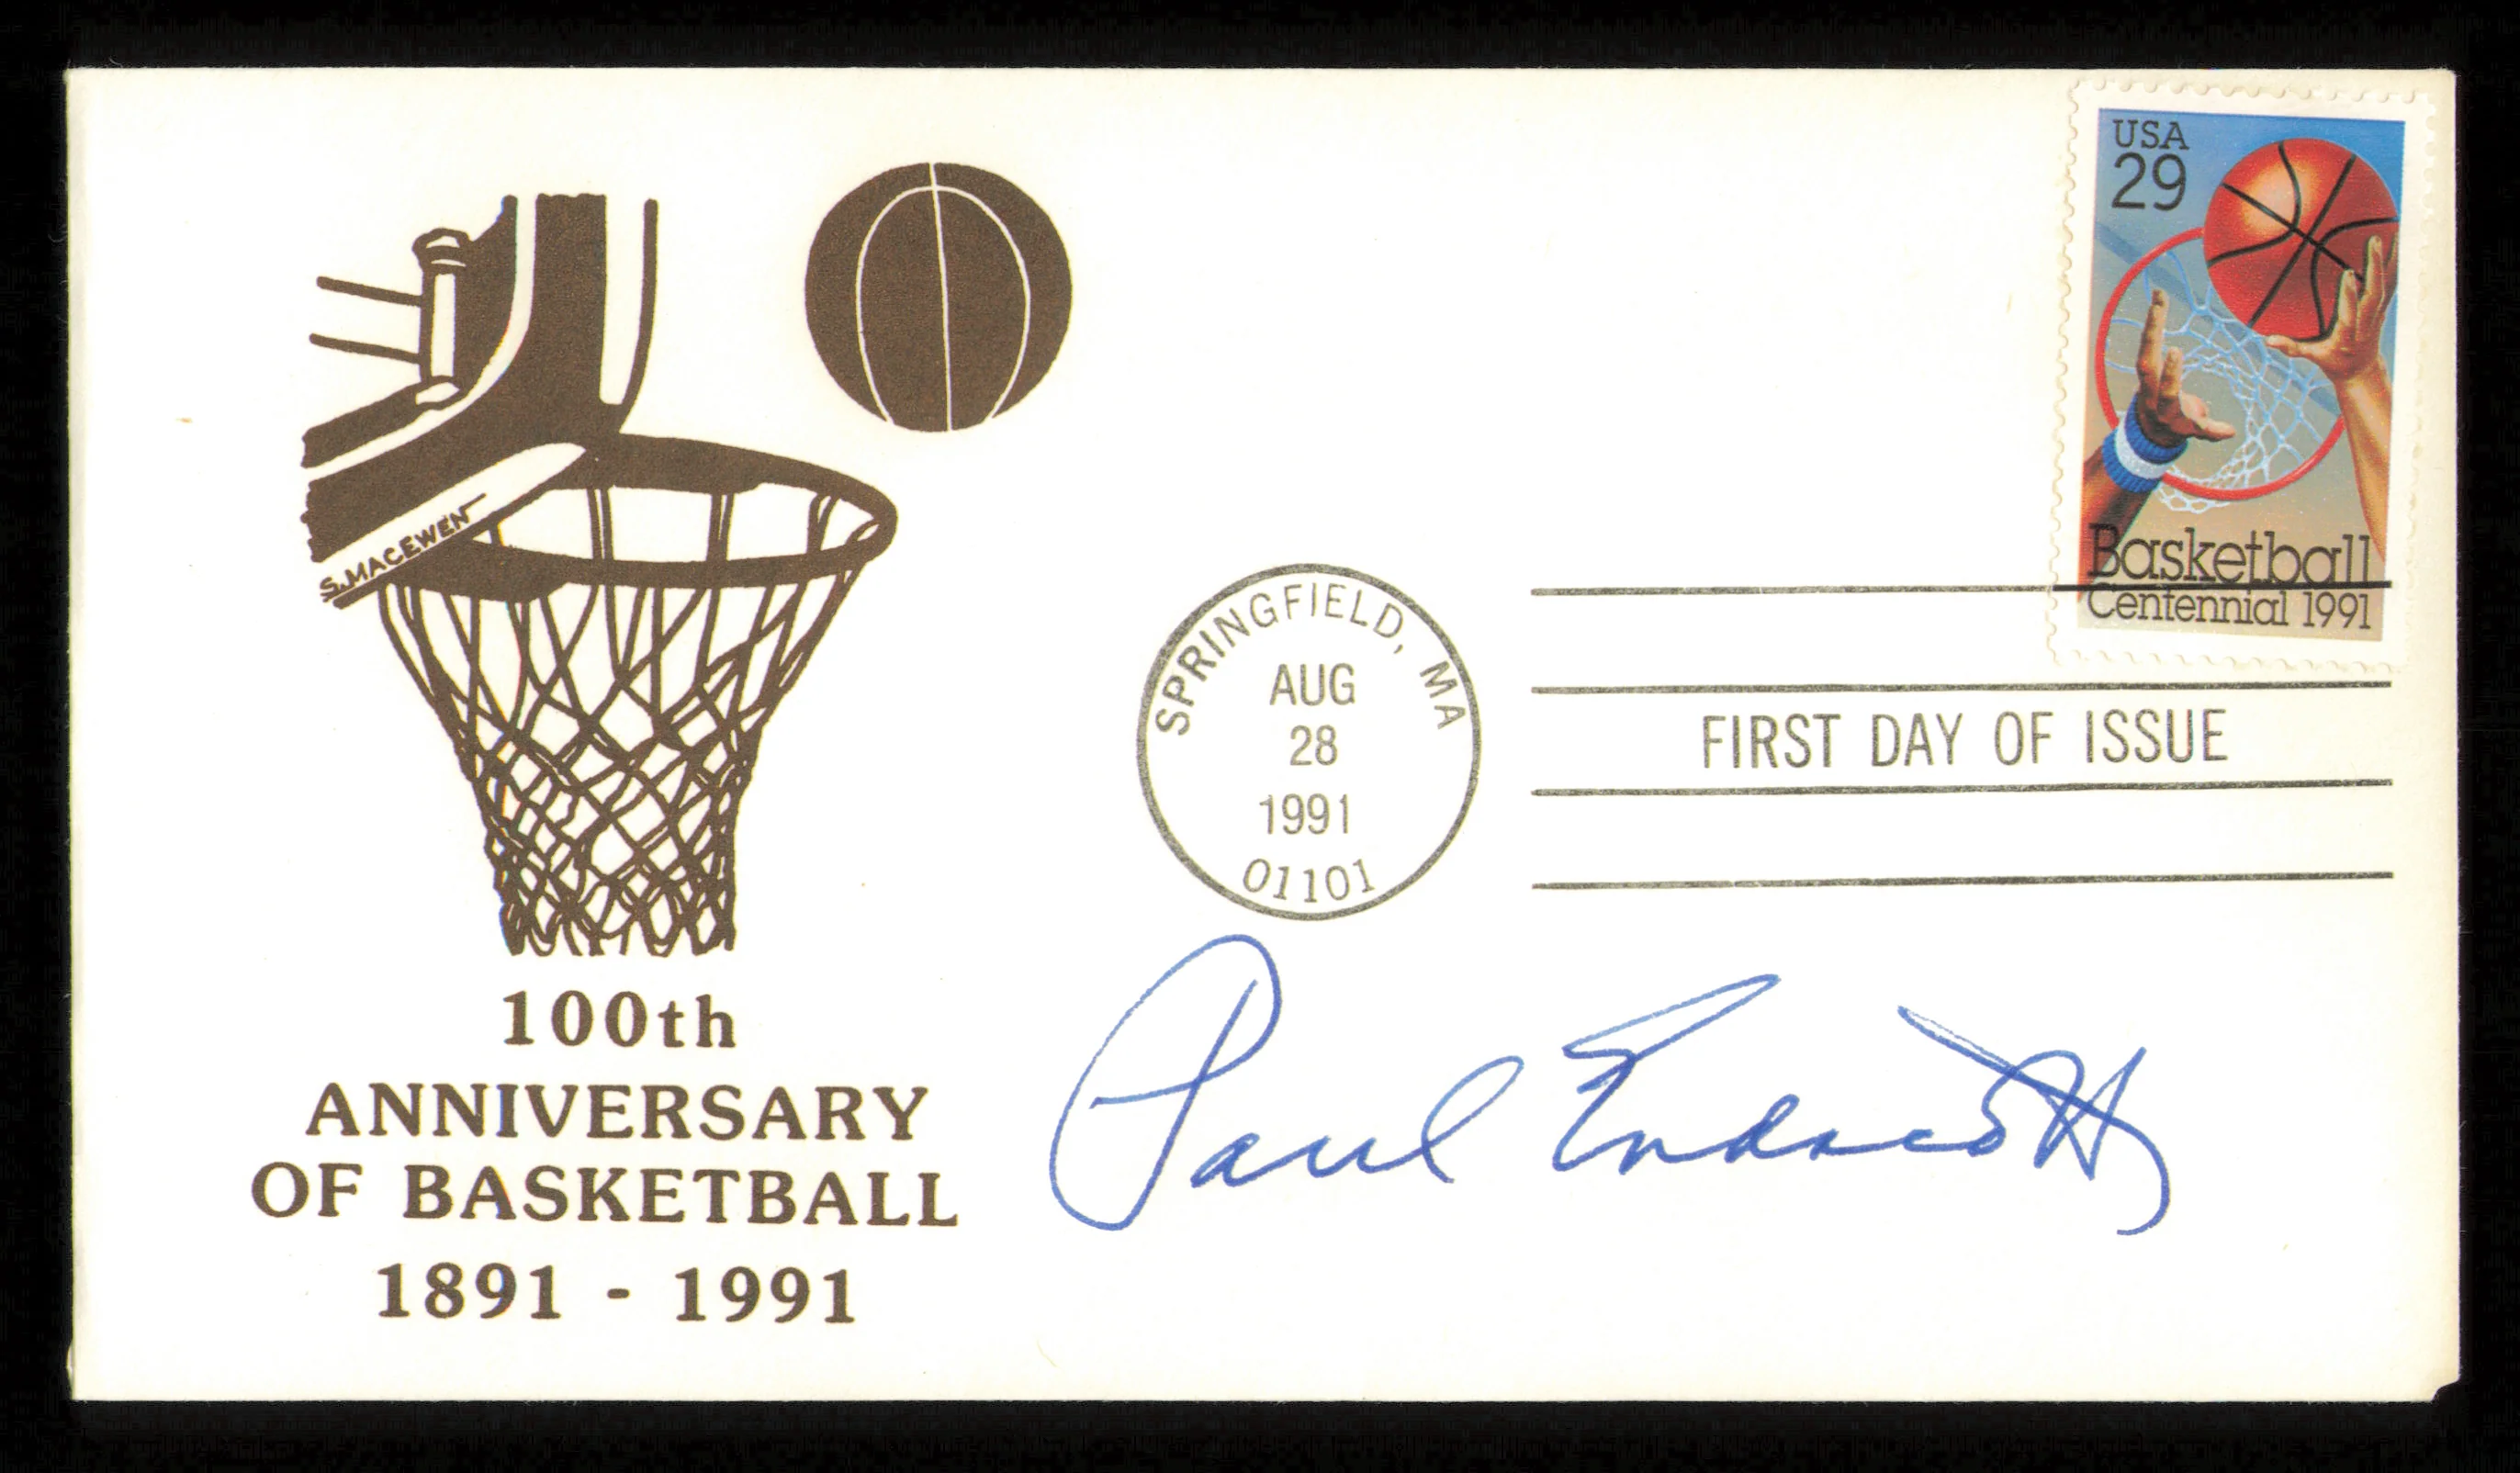 USA
29
Basketball
Centennial 1991
S. MACEWEN
SPRINGFIELD, MA
AUG
28
1991
01101
FIRST DAY OF ISSUE
100th
ANNIVERSARY
OF BASKETBALL
1891 - 1991
Paul Endacott